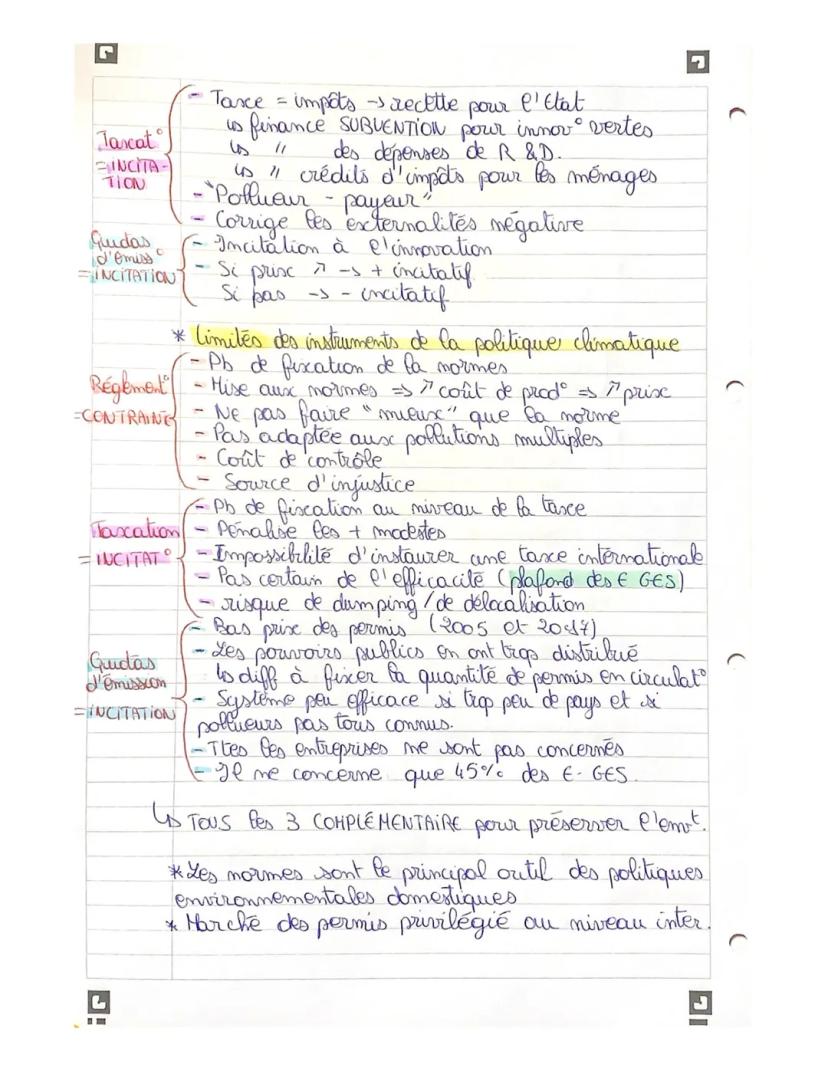 - Taxe = impôts → recette pour l'Etat
↳ finance SUBVENTION pour innov° vertes
↳ " des dépenses de R & D.
↳ " crédits d'impôts pour les ménages
Taxcat°
= INCITA-
TION
- "Pollueur - payeur"
- Corrige les externalités négative
Quotas
d'émiss°
= INCITATION
- Incitation à l'innovation
- Si prix ↗ → + incitatif
Si pas → - incitatif
* Limites des instruments de la politique climatique
Réglement°
= CONTRAINTE
- Pb de fixation de la normes
- Mise aux normes => ↗ coût de prod° => ↗ prix
- Ne pas faire "mieux" que la norme
- Pas adaptée aux pollutions multiples
- Coût de contrôle
- Source d'injustice
Taxcation
= INCITAT°
- Pb de fixcation au niveau de la taxe
- Pénalise les + modestes
- Impossibilité d'instaurer une taxe internationale
- Pas certain de l'efficacité (plafond des E GES)
- risque de dumping / de délocalisation
Quotas
d'émission
= INCITATION
- Bas prix des permis (2005 et 2017)
- Les pouvoirs publics en ont trop distribué
↳ diff à fixer la quantité de permis en circulat°
- Système peu efficace si trop peu de pays et si
pollueurs pas tous connus.
- Ttes les entreprises ne sont pas concernés
- Il ne concerne que 45% des E- GES.
↳ TOUS les 3 COMPLÉMENTAIRE pour préserver l'envt.
* Les normes sont le principal outil des politiques
environnementales domestiques
* Marché des permis privilégié au niveau inter.